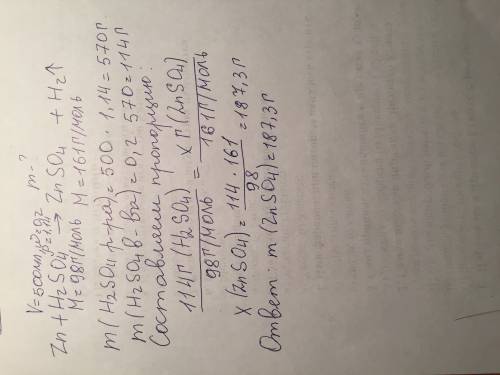 V=500мл, ω=0,2 m-?
ρ=1,14
Zn + H₂SO₄ → ZnSO₄ + H₂↑
M=98г/моль M=161г/моль
m(H₂SO₄ р-ра)=500·1,14=570г
m(H₂SO₄ в-ва)=0,2·570=114г
Составляем пропорцию:
114г(H₂SO₄) / 98г/моль = xг(ZnSO₄) / 161г/моль
x(ZnSO₄)= 114·161 / 98 =187,3г
Ответ: m(ZnSO₄)=187,3г